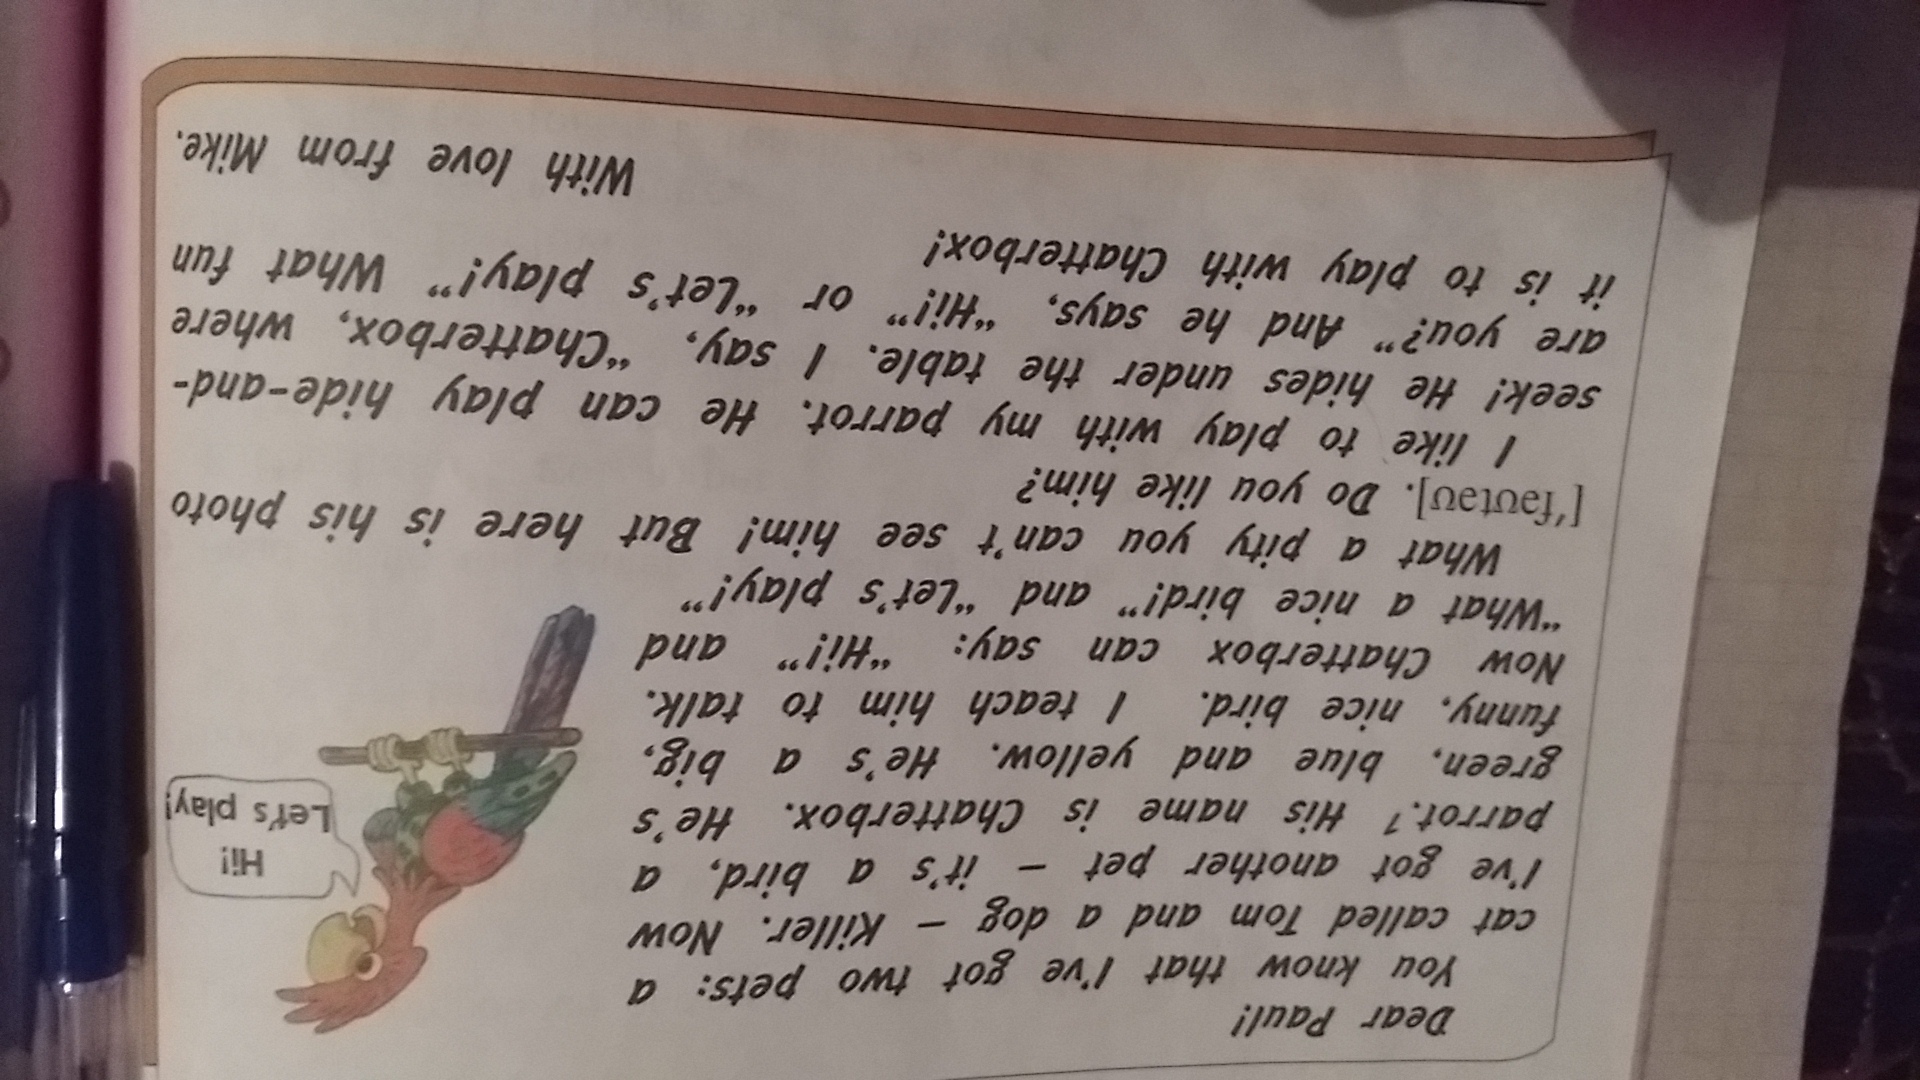 Dear Paul!
You know that I've got two pets: a
cat called Tom and a dog – Killer. Now
I've got another pet – it's a bird, a
parrot.¹ His name is Chatterbox. He's
green, blue and yellow. He's a big,
funny, nice bird. I teach him to talk.
Now Chatterbox can say: "Hi!" and
"What a nice bird!" and "Let's play!"
Hi!
Let's play!
What a pity you can't see him! But here is his photo
[ˈfəʊtəʊ]. Do you like him?
I like to play with my parrot. He can play hide-and-
seek! He hides under the table. I say, "Chatterbox, where
are you?" And he says, "Hi!" or "Let's play!" What fun
it is to play with Chatterbox!
With love from Mike.